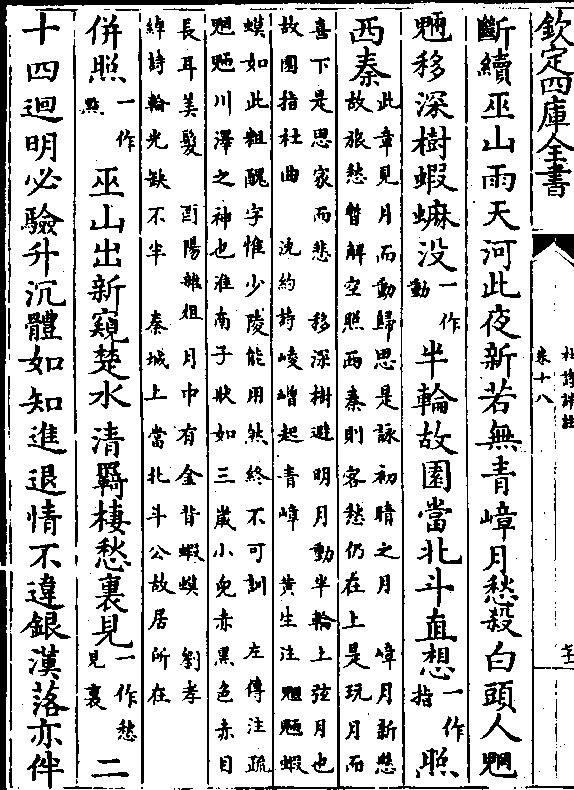 欽定四庫全書
卷十八
斷續巫山雨天河此夜新若無青嶂月愁殺白頭人魍
魎移深樹蝦䗫没一作動半輪故園當北斗直想一作指照
西秦此章見月而動歸思是詠初晴之月 嶂月新悲
故旅愁暫解空照西秦則客愁仍在上是玩月而
喜下是思家而悲 移深樹避明月動半輪上弦月也
故園指杜曲 沈約詩崚嶒起青嶂 黄生注魍魎蝦
蟆如此粗醜字惟少陵能用然終不可訓 左傳注疏
魍魎川澤之神也淮南子狀如三嵗小兒赤黑色赤目
長耳美髮 酉陽雜俎月中有金背蝦蟆 劉孝
綽詩輪光缺不半 秦城上當北斗公故居所在
併照一作㸃巫山出新窺楚水清羇棲愁裏見一作愁見裏二
十四迴明必驗升沉體如知進退情不違銀漢落亦伴